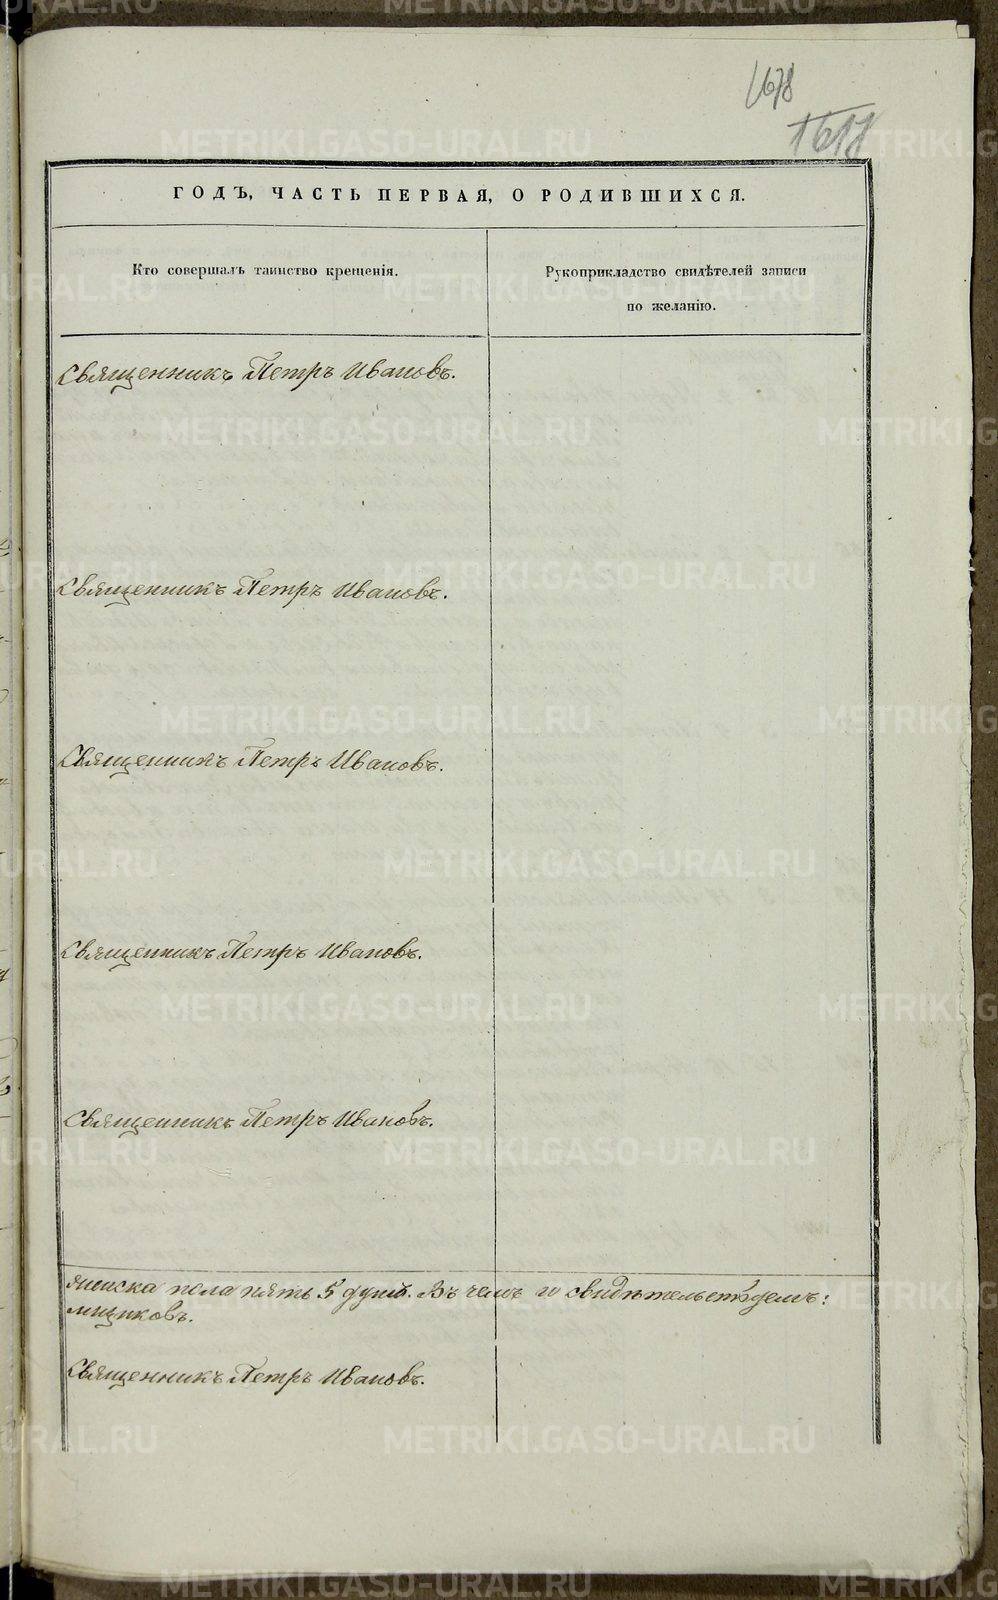 1678
1611
ГОДЪ, ЧАСТЬ ПЕРВАЯ, О РОДИВШИХСЯ.
Кто совершалъ таинство крещенія.
Рукоприкладство свидѣтелей записи
по желанію.
Священникъ Петръ Ивановъ.
Священникъ Петръ Ивановъ.
Священникъ Петръ Ивановъ.
Священникъ Петръ Ивановъ.
Священникъ Петръ Ивановъ.
женска пола пять 5 душъ. Въ чемъ и свидѣтельствуемъ:
Священникъ Петръ Ивановъ.
METRIKI.GASO-URAL.RU